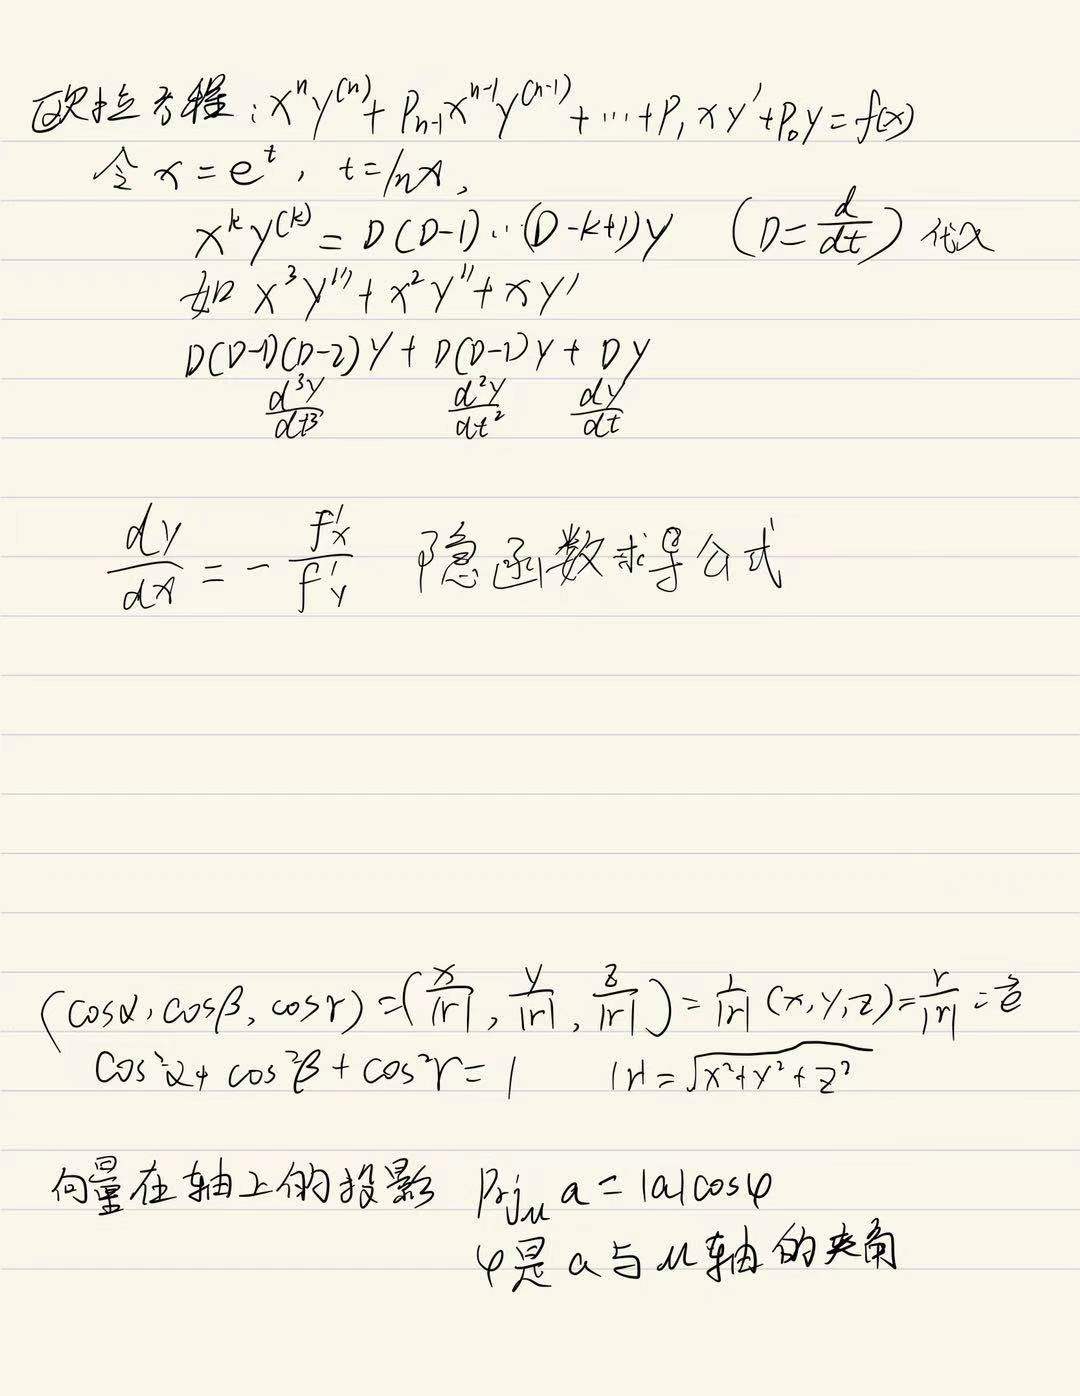 欧拉方程:xⁿy⁽ⁿ⁾+Pₙ₋₁xⁿ⁻¹y⁽ⁿ⁻¹⁾+…+P₁xy'+P₀y=f(x)
令x=eᵗ, t=lnx,
xᵏy⁽ᵏ⁾=D(D-1)…(D-k+1)y (D=d/dt)代入
如 x³y'''+x²y''+xy'
D(D-1)(D-2)y+D(D-1)y+Dy
d³y/dt³ d²y/dt² dy/dt
dy/dx=-f'x/f'y 隐函数求导公式
(cosα,cosβ,cosγ)=(x/|r|,y/|r|,z/|r|)=1/|r|(x,y,z)=r/|r|=e⃗
cos²α+cos²β+cos²γ=1 |r|=√(x²+y²+z²)
向量在轴上的投影 Prjᵤ a=|a|cosφ
φ是a与u轴的夹角